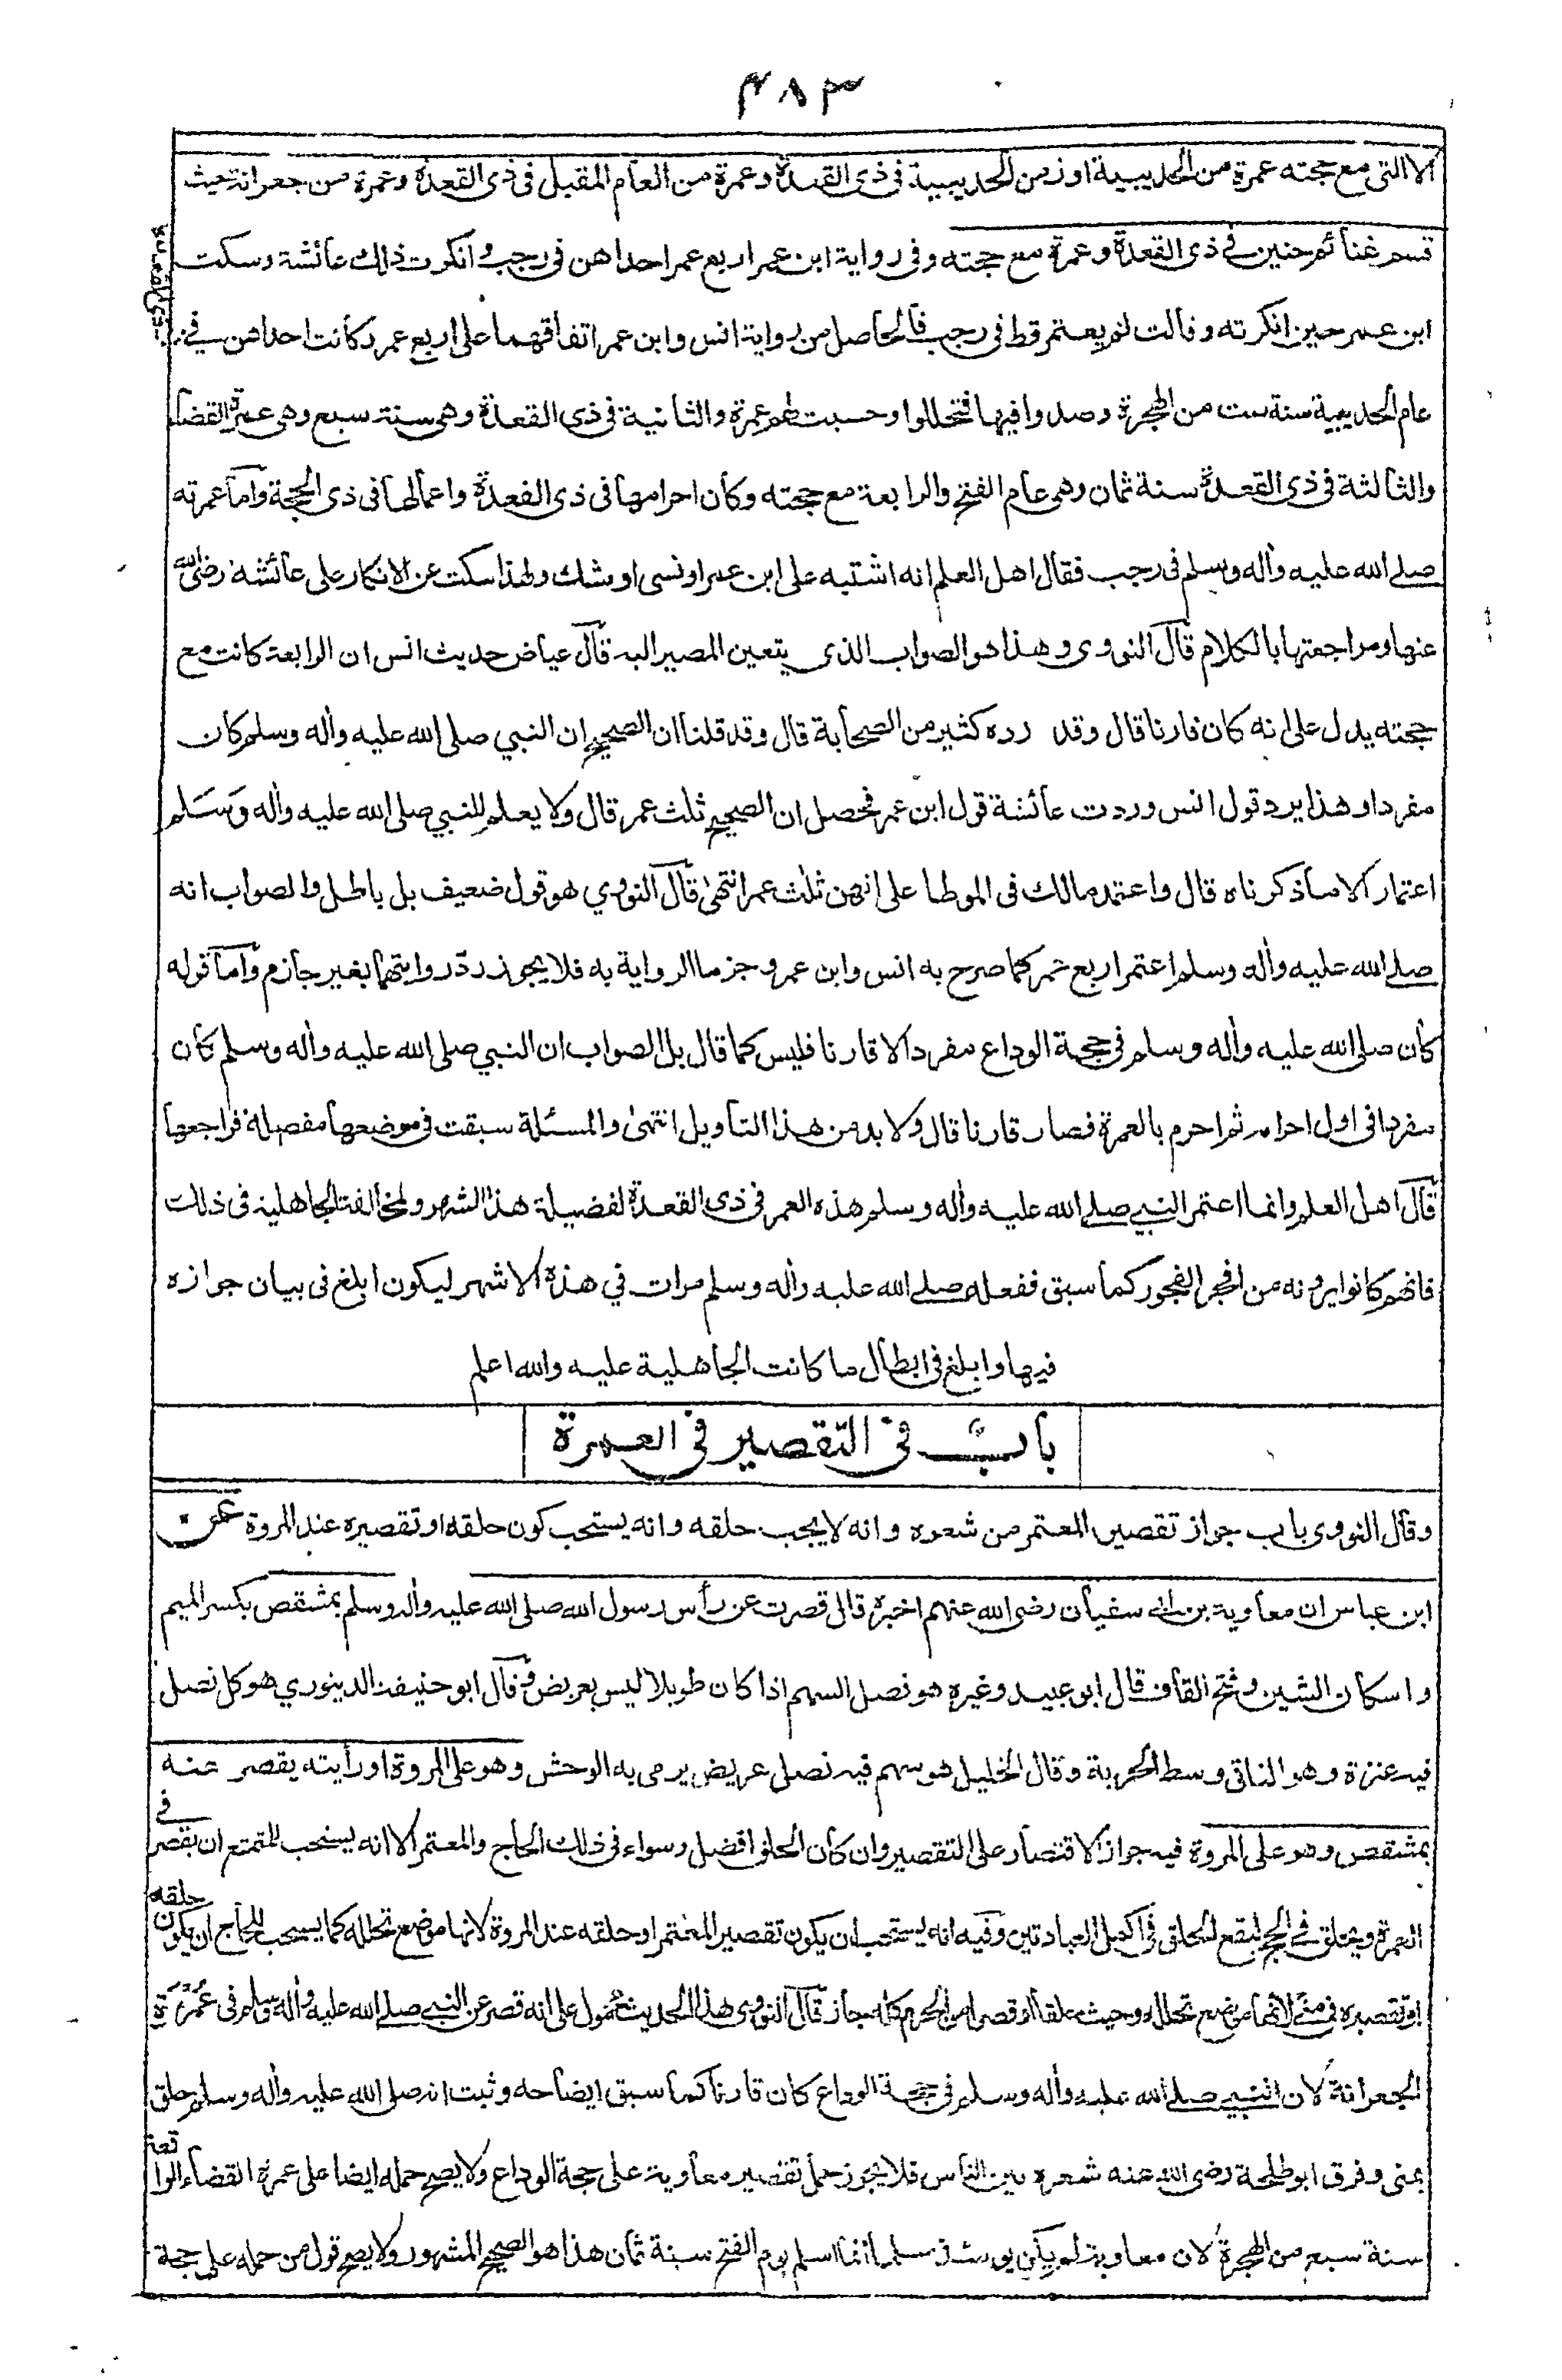 ٤٨٣
الا التى مع حجته عمرة من الحديبية او زمن الحديبية فى ذى القعدة وعمرة من العام المقبل فى ذى القعدة وعمرة من جعرانة حيث
قسم غنائم حنين فى ذى القعدة وعمرة مع حجته وفى رواية ابن عمر اربع عمر احداهن فى رجب و انكرت ذلك عائشة وسكت
ابن عمر حين انكرته وقالت لم يعتمر قط فى رجب فالحاصل من رواية انس وابن عمر اتفاقهما على اربع عمر وكانت احداهن فى
ذى القعدة
عام الحديبية سنة ست من الهجرة وصدوا فيها فتحللوا وحسبت لهم عمرة والثانية فى ذى القعدة وهى سنة سبع وهى عمرة القضاء
والثالثة فى ذى القعدة سنة ثمان وهى عام الفتح والرابعة مع حجته وكان احرامها فى ذى القعدة واعمالها فى ذى الحجة واما عمرته
صلى الله عليه واله وسلم فى رجب فقال اهل العلم انه اشتبه على ابن عمر او نسى او شك ولهذا سكت عن الانكار على عائشة رضى الله
عنها ومراجعتها بالكلام قال النووى وهذا هو الصواب الذى يتعين المصير اليه قال عياض حديث انس ان الرابعة كانت مع
حجته يدل على انه كان قارنا قال وقد رده كثير من الصحابة قال وقد قلنا ان الصحيح ان النبي صلى الله عليه واله وسلم كان
مفردا وهذا يرد قول انس وردت عائشة قول ابن عمر فحصل ان الصحيح ثلث عمر قال ولا يعلم للنبي صلى الله عليه واله وسلم
اعتمار الا ما ذكرناه قال واعتمد مالك فى الموطا على انهن ثلث عمر انتهى قال النووي هو قول ضعيف بل باطل والصواب انه
صلى الله عليه واله وسلم اعتمر اربع عمر كما صرح به انس وابن عمر وجزما الرواية به فلا يجوز رد روايتهما بغير جازم واما قوله
كان صلى الله عليه واله وسلم فى حجة الوداع مفردا لا قارنا فليس كما قال بل الصواب ان النبي صلى الله عليه واله وسلم كان
مفردا فى اول احرامه ثم احرم بالعمرة فصار قارنا قال ولا بد من هذا التاويل انتهى والمسئلة سبقت فى موضعها مفصلة فراجعها
قال اهل العلم وانما اعتمر النبي صلى الله عليه واله وسلم هذه العمر فى ذى القعدة لفضيلة هذا الشهر ولمخالفة الجاهلية فى ذلك
فانهم كانوا يرونه من افجر الفجور كما سبق ففعله صلى الله عليه واله وسلم مرات في هذه الاشهر ليكون ابلغ فى بيان جوازه
فيها وابلغ فى ابطال ما كانت الجاهلية عليه والله اعلم
باب فى التقصير فى العمرة
وقال النووى باب جواز تقصير المعتمر من شعره وانه لا يجب حلقه وانه يستحب كون حلقه او تقصيره عند المروة عن
ابن عباس ان معاوية بن ابى سفيان رضى الله عنهم اخبره قال قصرت عن رأس رسول الله صلى الله عليه واله وسلم بمشقص بكسر الميم
واسكان الشين وفتح القاف قال ابو عبيد وغيره هو نصل السهم اذا كان طويلا ليس بعريض وقال ابو حنيفة الدينوري هو كل نصل
فيه عنزة وهو الناتى وسط الحربة وقال الخليل هو سهم فيه نصل عريض يرمى به الوحش وهو على المروة او رأيته يقصر عنه
بمشقص وهو على المروة فيه جواز الاقتصار على التقصير وان كان الحلق افضل وسواء فى ذلك الحاج والمعتمر الا انه يستحب للمتمتع ان يقصر فى
العمرة ويحلق فى الحج ليقع الحلق فى اكمل العبادتين وفيه انه يستحب ان يكون تقصير المعتمر او حلقه عند المروة لانها موضع تحلله كما يستحب للحاج ان يكون حلقه
او تقصيره فى منى لانها موضع تحلله وحيث حلقا او قصرا من الحرم كله جاز قال النووى هذا الحديث محمول على انه قصر عن النبي صلى الله عليه واله وسلم فى عمرة
الجعرانة لان النبي صلى الله عليه واله وسلم فى حجة الوداع كان قارنا كما سبق ايضاحه وثبت انه صلى الله عليه واله وسلم حلق
بمنى وفرق ابو طلحة رضى الله عنه شعره بين الناس فلا يجوز حمل تقصير معاوية على حجة الوداع ولا يصح حمله ايضا على عمرة القضاء الواقعة
سنة سبع من الهجرة لان معاوية لم يكن يومئذ مسلما انما اسلم يوم الفتح سنة ثمان هذا هو الصحيح المشهور ولا يصح قول من حمله على حجة